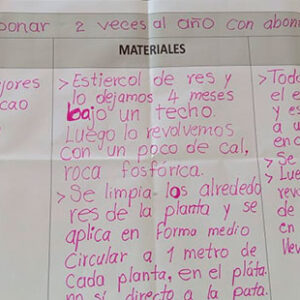 onar 2 veces al año con abon
MATERIALES
jores
cao
> Estiercol de res y
lo dejamos 4 meses
bajo un techo.
Luego lo revolvemos
con un poco de cal,
roca fosfórica.
> Se limpia los alrededo
res de la planta y se
aplica en forma medio
Circular a 1 metro de
Cada planta, en el plato
no si directo a la pata.
> Todo
el e
y es
a u
en c
> Se
> Lue
de
en
llev